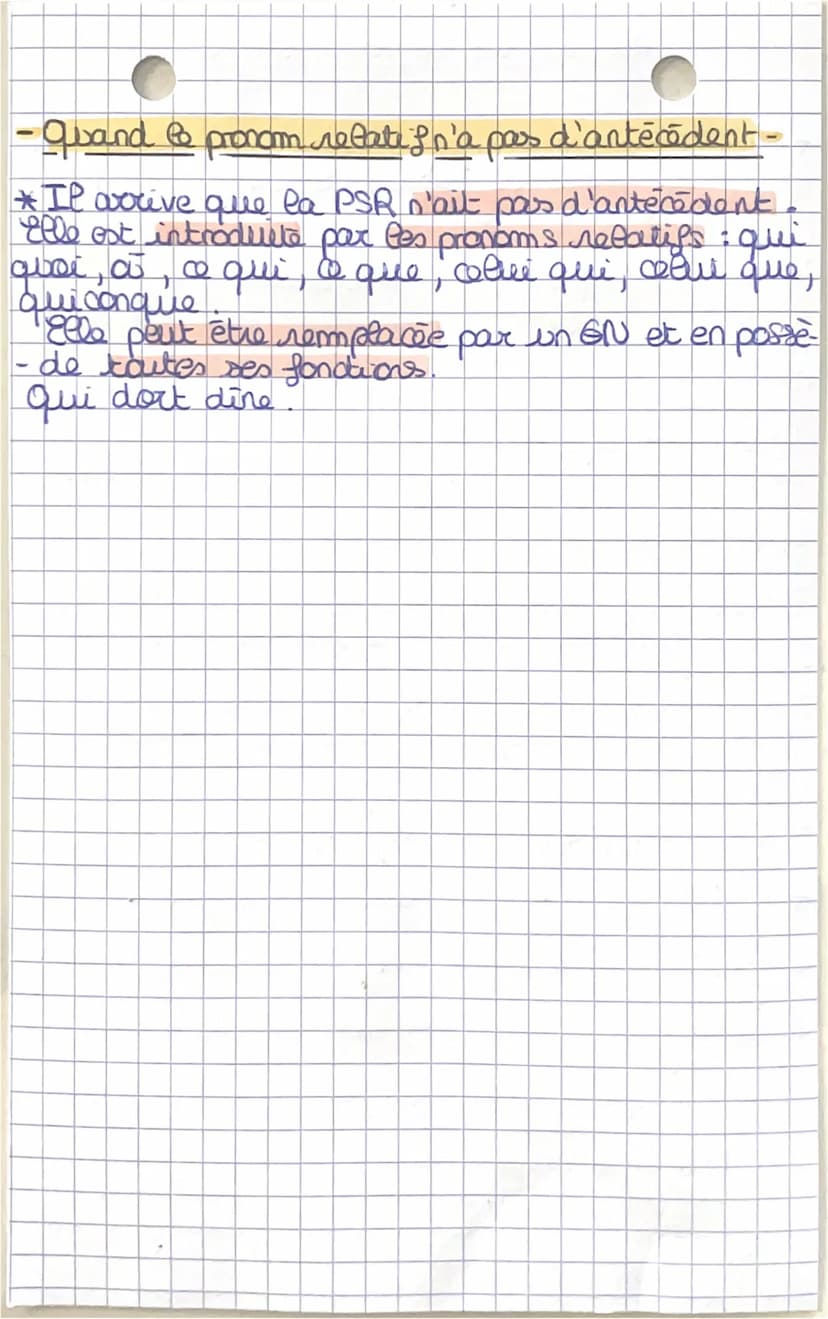 - Quand le pronom relatif n'a pas d'antécédent -
* Il arrive que la PSR n'ait pas d'antécédent.
Elle est introduite par les pronoms relatifs : qui
quoi, où, ce qui, ce que, celui qui, celui que,
quiconque.
Elle peut être remplacée par un GN et en possè-
- de toutes ses fonctions.
Qui dort dine.